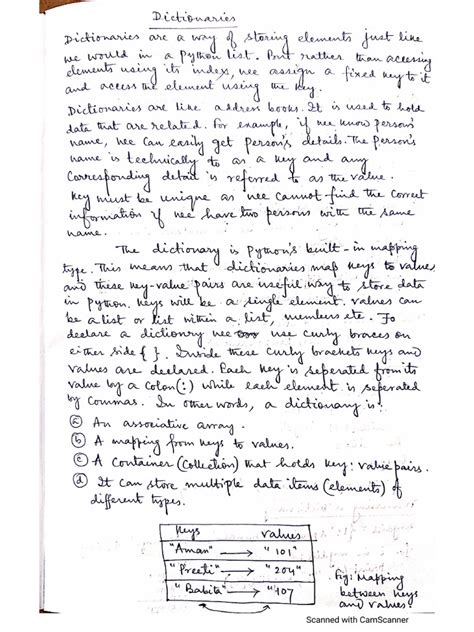 Dictionaries
Dictionaries are a way of storing elements just like
we would in a Python list. But rather than accessing
elements using its index, we assign a fixed key to it
and access the element using the key.
Dictionaries are like address books. It is used to hold
data that are related. For example, if we know person's
name, we can easily get person's details. The person's
name is technically to as a key and any
corresponding detail is referred to as the value.
Key must be unique as we cannot find the correct
information if we have two persons with the same
name.
The dictionary is Python's built-in mapping
type. This means that dictionaries map keys to values
and these key-value pairs are useful way to store data
in Python. Keys will be a single element. Values can
be a list or list within a list, numbers etc. To
declare a dictionry we use curly braces on
either side { }. Inside these curly brackets keys and
values are declared. Each key is seperated from its
value by a colon(:) while each element is seperated
by commas. In other words, a dictionary is:
(a) An associative array.
(b) A mapping from keys to values.
(c) A container (collection) that holds key: value pairs.
(d) It can store multiple data items (elements) of
different types.
Keys values
"Aman" → "101"
"Preeti" → "204"
"Babita" → "107
Fig: Mapping
between keys
and values.
Scanned with CamScanner